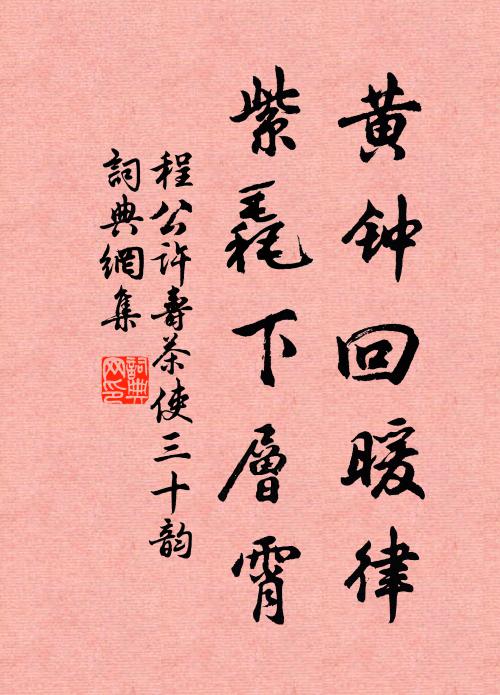 黄钟回暖律
紫毳下層霄
程公许壽茶使三十韵
詞典網集
詞典
网印